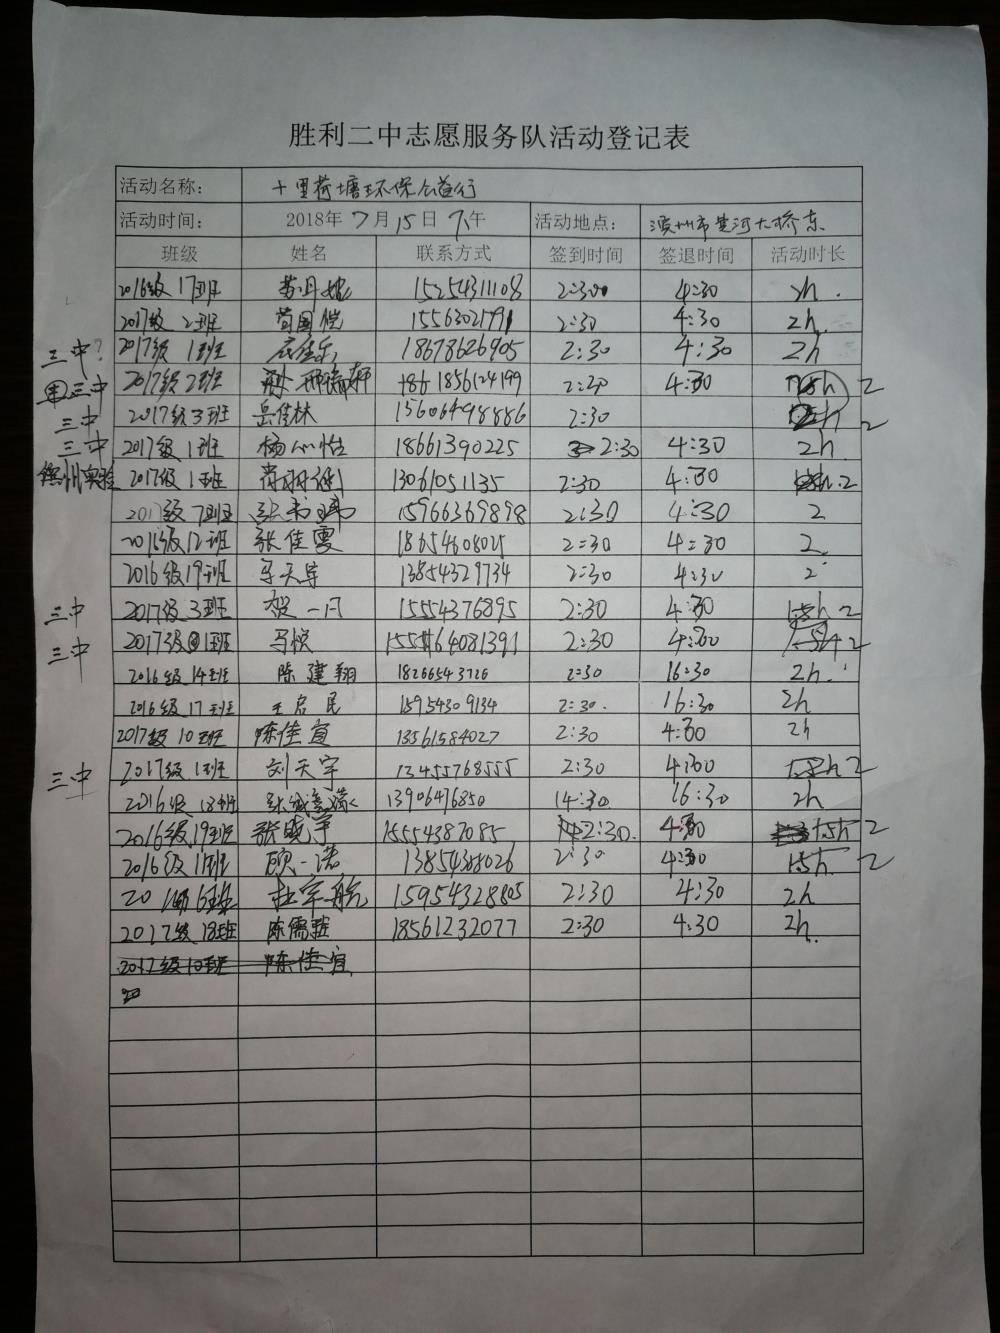 胜利二中志愿服务队活动登记表
活动名称： 十里荷塘环保公益行
活动时间： 2018年7月15日下午 活动地点： 滨州市黄河大桥东
班级 姓名 联系方式 签到时间 签退时间 活动时长
2016级17班 15254311108 2:30 4:30 2h.
2017级2班 2:30 4:30 2h.
三中? 2017级1班 18678626905 2:30 4:30 2h
三中 2017级2班 18561856124199 4:30 2
三中 2017级3班 岳佳林 15606498886 2:30 2
三中 2017级1班 杨心怡 18661390225 2:30 4:30 2h
德州实验 2017级1班 13061051135 2:30 4:30 2
2017级7班 15966369898 2:30 4:30 2
12班 张佳雯 18654608025 2:30 4:30 2
2016级19班 13854329734 2:30 4:30 2
三中 2017级3班 贺一凡 15554376895 2:30 4:30 2
三中 2017级1班 马悦 2:30 4:30 2
2016级14班 陈建翔 18266543726 2:30 16:30 2h.
2016级17班 王启民 15954309134 2:30. 16:30 2h
2017级10班 陈佳宜 13561584027 2:30 4:30 2h
三中 2017级1班 刘天宇 13455768555 2:30 4:30 2
2016级18班 13906476850 14:30 16:30 2h
2016级19班 张晓宇 15554387085 2:30. 4:30 1.5h 2
2016级11班 顾一诺 13854308026 2:30 4:30 1.5h 2
杜宇航 15954328805 2:30 4:30 2h
2017级18班 陈儒雅 18561232077 2:30 4:30 2h.
2017级10班 陈佳宜